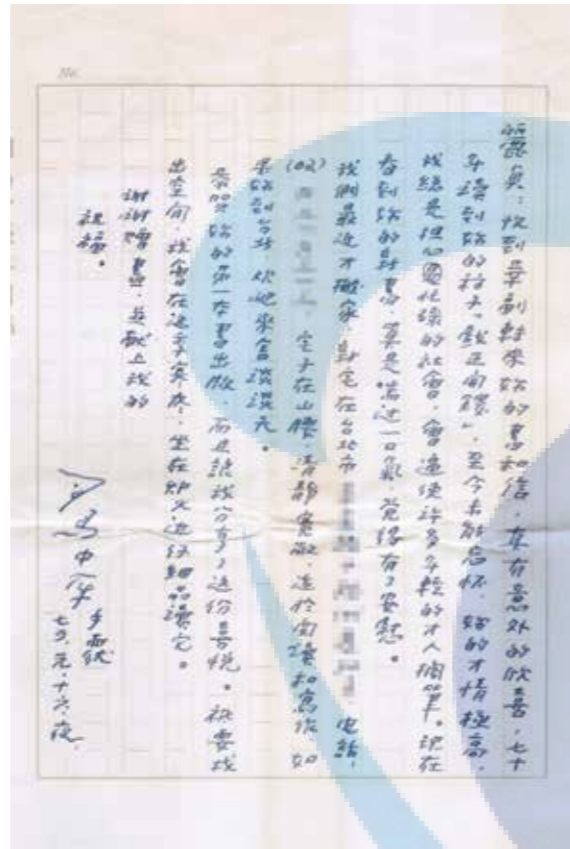 No.
麗貞：收到華副轉來妳的書和信，真有意外的欣喜，七十
年讀到妳的稿子「戲正面鏡」，至今未能忘懷，妳的才情極高，
我總是擔心變化球的社會，會迫使許多年輕的才人擱筆。現在
看到妳的新書，算是喘過一口氣，覺得有了安慰。
我們最近才搬家，新宅在台北市 電話，
(02) 宅子在山腰，清靜寬敞，適於閱讀和寫作，如
果妳到台北，歡迎來舍談談天。
恭賀妳的第一本書出版，而且讓我分享了這份喜悅。祇要找
出空間，我會在這季寒冬，坐在炉火邊仔細品讀完。
謝謝贈書，並獻上我的
祝福。
司馬中原 手啟
七 、元、十六、夜、